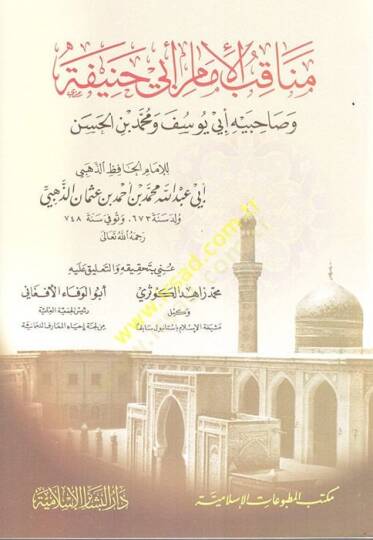 مناقب الإمام أبي حنيفة
وصاحبيه أبي يوسف ومحمد بن الحسن
للإمام الحافظ الذهبي
أبي عبد الله محمد بن أحمد بن عثمان الذهبي
ولد سنة ٦٧٣، وتوفي سنة ٧٤٨
رحمه الله تعالى
عني بتحقيقه والتعليق عليه
محمد زاهد الكوثري
وكيل
مشيخة الإسلام باستانبول سابقا
أبو الوفاء الأفغاني
رئيس الجمعية العلمية
من لجنة إحياء المعارف النعمانية
www.esad.com.tr
مكتب المطبوعات الإسلامية
دار البشائر الإسلامية